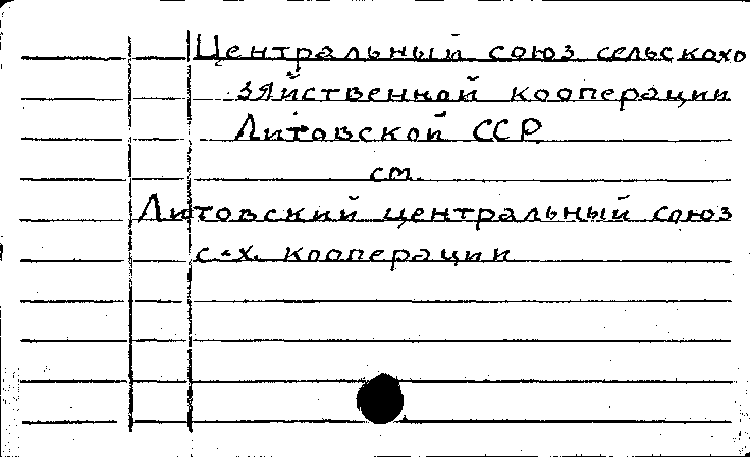 Центральный союз сельскохо
зяйственной кооперации
Литовской ССР
см.
Литовский центральный союз
с.-х. кооперации